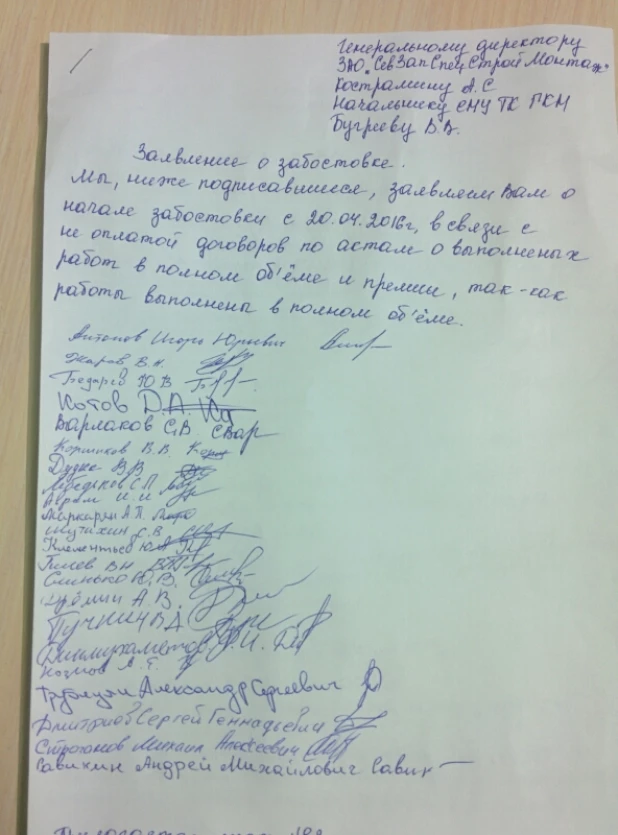 Генеральному директору
ЗАО "СевЗапСпецСтройМонтаж"
Кострамину А.С
Начальнику СМУ ТК ГКМ
Бугреву В.В.
Заявление о забостовке.
Мы, ниже подписавшиеся, заявляем Вам о
начале забостовки с 20.04.2016г, в связи с
не оплатой договоров по актам о выполненых
работ в полном об'ёме и премии, так-как
работы выполнены в полном об'ёме.
Антонов Игорь Юриевич
Жаров В.Н.
Ю В
Котов Д.А.
Варлаков С.В. СВар
Коршиков В.В.
Дудко В В
Лебедьков С.П.
Аврам И.И
Маркарян А.П.
Шутихин С.В
Клементьев Ю.А
Гилев ВН
В.В.
А.В.
Пучнин В Д
Динмухаметов И.
Козлов А.Г.
Александр Сергеевич
Дмитриов Сергей Геннадьевич
Строганов Михаил Алексеевич
Савихин Андрей Михайлович Савих